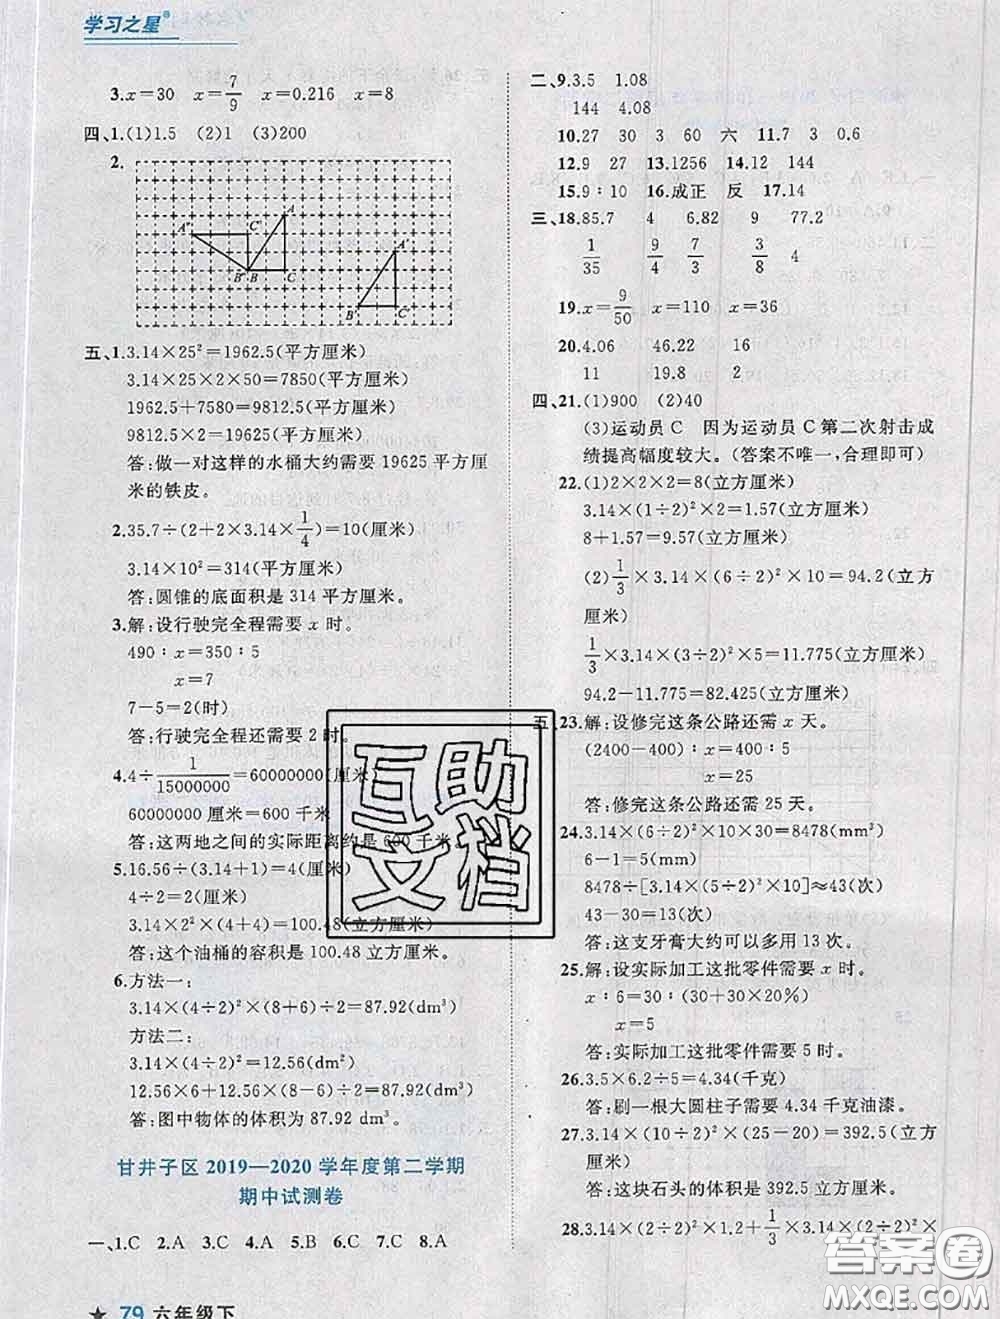 学习之星®
3.x=30 x=7/9 x=0.216 x=8
四、1.(1)1.5 (2)1 (3)200
2.
A″ C″ A B″ B C A′ B′ C′
五、1.3.14×25²=1962.5(平方厘米)
3.14×25×2×50=7850(平方厘米)
1962.5+7580=9812.5(平方厘米)
9812.5×2=19625(平方厘米)
答:做一对这样的水桶大约需要 19625 平方厘
米的铁皮。
2.35.7÷(2+2×3.14×1/4)=10(厘米)
3.14×10²=314(平方厘米)
答:圆锥的底面积是 314 平方厘米。
3.解:设行驶完全程需要 x 时。
490∶x=350∶5
x=7
7-5=2(时)
答:行驶完全程还需要 2 时。
4.4÷1/15000000=60000000(厘米)
60000000 厘米=600 千米
答:这两地之间的实际距离约是 600 千米。
5.16.56÷(3.14+1)=4(厘米)
4÷2=2(厘米)
3.14×2²×4×2=100.48(立方厘米)
答:这个油桶的容积是 100.48 立方厘米。
6.方法一:
3.14×(4÷2)²×(8+6)÷2=87.92(dm³)
方法二:
3.14×(4÷2)²=12.56(dm²)
12.56×6+12.56×(8-6)÷2=87.92(dm³)
答:图中物体的体积为 87.92 dm³。
甘井子区 2019—2020 学年度第二学期
期中试测卷
一、1.C 2.A 3.C 4.A 5.B 6.C 7.C 8.A
★ 79 六年级下
二、9.3.5 1.08
144 4.08
10.27 30 3 60 六 11.7 3 0.6
12.9 27 13.1256 14.12 144
15.9∶10 16.成正 反 17.14
三、18.85.7 4 6.82 9 77.2
1/35 9/4 7/7 3/8 4
19.x=9/50 x=110 x=36
20.4.06 46.22 16
11 19.8 2
四、21.(1)900 (2)40
(3)运动员 C 因为运动员 C 第二次射击成
绩提高幅度较大。(答案不唯一,合理即可)
22.(1)2×2×2=8(立方厘米)
3.14×(1÷2)²×2=1.57(立方厘米)
8+1.57=9.57(立方厘米)
(2)1/3×3.14×(6÷2)²×10=94.2(立方
厘米)
1/3×3.14×(3÷2)²×5=11.775(立方厘米)
94.2-11.775=82.425(立方厘米)
五、23.解:设修完这条公路还需 x 天。
(2400-400)∶x=400∶5
x=25
答:修完这条公路还需 25 天。
24.3.14×(6÷2)²×10×30=8478(mm³)
6-1=5(mm)
8478÷[3.14×(5÷2)²×10]≈43(次)
43-30=13(次)
答:这支牙膏大约可以多用 13 次。
25.解:设实际加工这批零件需要 x 时。
x∶6=30∶(30+30×20%)
x=5
答:实际加工这批零件需要 5 时。
26.3.5×6.2÷5=4.34(千克)
答:刷一根大圆柱子需要 4.34 千克油漆。
27.3.14×(10÷2)²×(25-20)=392.5(立方
厘米)
答:这块石头的体积是 392.5 立方厘米。
28.3.14×(2÷2)²×1.2+1/3×3.14×(2÷2)²×
互助
文档
答案圈
MXQE.COM